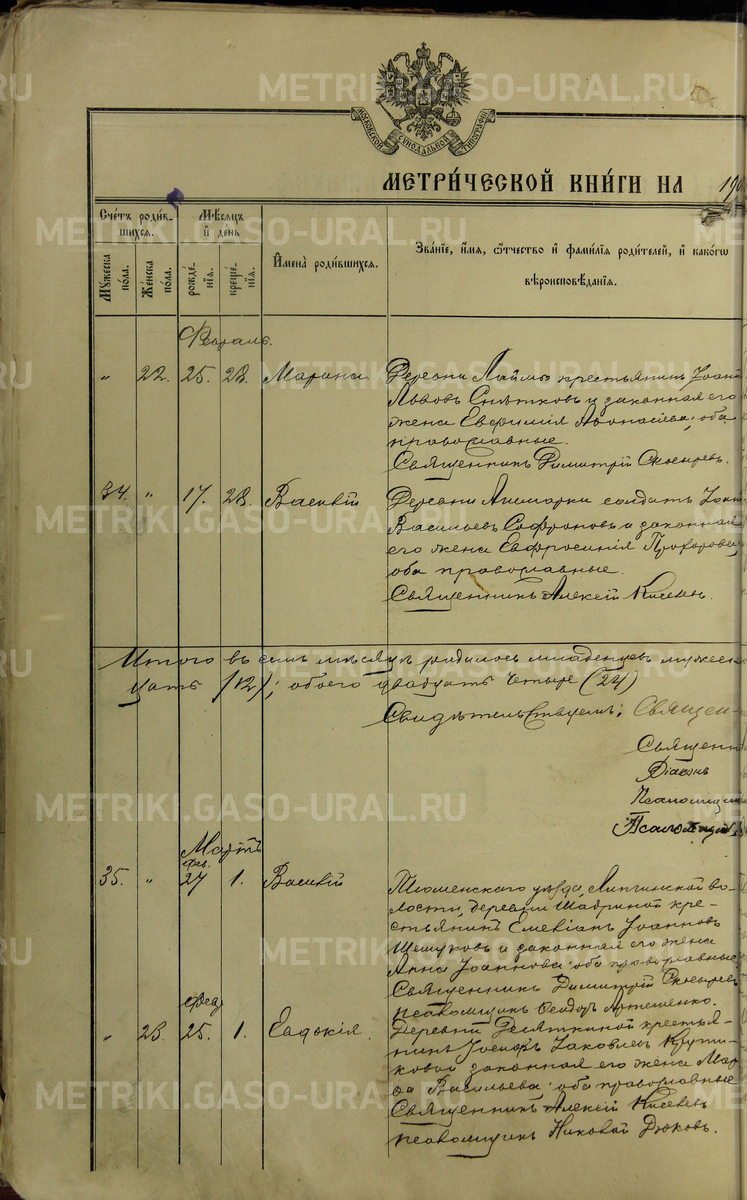 METRIKI.GASO-URAL.RU
МОСКОВСКОЙ СѴНОДАЛЬНОЙ ТИПОГРАФІИ
МЕТРИ́ЧЕСКОЙ КНИ́ГИ НА 190
Сче́тъ роди́в-
шихся.
Мꙋ́жеска по́ла.
Же́нска по́ла.
Мѣ́сяцъ
и҆ де́нь
рожде́-
нїя.
креще́-
нїя.
И҆мена̀ роди́вшихся.
Зва́нїе, и҆́мя, ѻ҆́тчество и҆ фами́лїя роди́телей, и҆ како́гѡ
вѣроисповѣ́данїя.
Февраль.
" 22. 25. 28. Марина Деревни Лаймы крестьянинъ Іоанн
Львовъ Снѣтковъ и законная его
жена Евфимія Аѳонасіева; оба
православные.
Священникъ Димитрій
34. " 17. 28. Василій Деревни солдатъ Іоанн
Васильевъ Софроновъ и законная
его жена Евфросинія Прохорова
оба православные.
Священникъ Алексій
Итого въ семъ мѣсяцѣ родилось младенцевъ мужеск
цать /12/; обоего двадцать четыре (24)
Свидѣтельствуемъ: Священ-
Священн
Діаконъ
Псаломщик
Псаломщикъ
Мартъ
фев.
35. " 27 1. Василій Тюменскаго уѣзда, Липчинской во-
лости, деревни Шадриной кре-
стьянинъ Емеліанъ Іоанновъ
Шешуковъ и законная его жена
Анна Іоаннова; оба православные
Священникъ Димитрій
псаломщикъ Ѳеодоръ
фев.
" 23. 25. 1. Евдокія. Деревни Десяткиной крестья-
нинъ Іосифъ Іаковлевъ
законная его жена Мар-
ѳа Васильева; оба православные
Священникъ Алексій
псаломщикъ Николай Дюковъ.